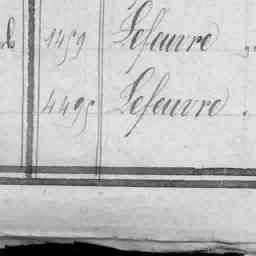 1459 Lefeuvre
4495 Lefeuvre